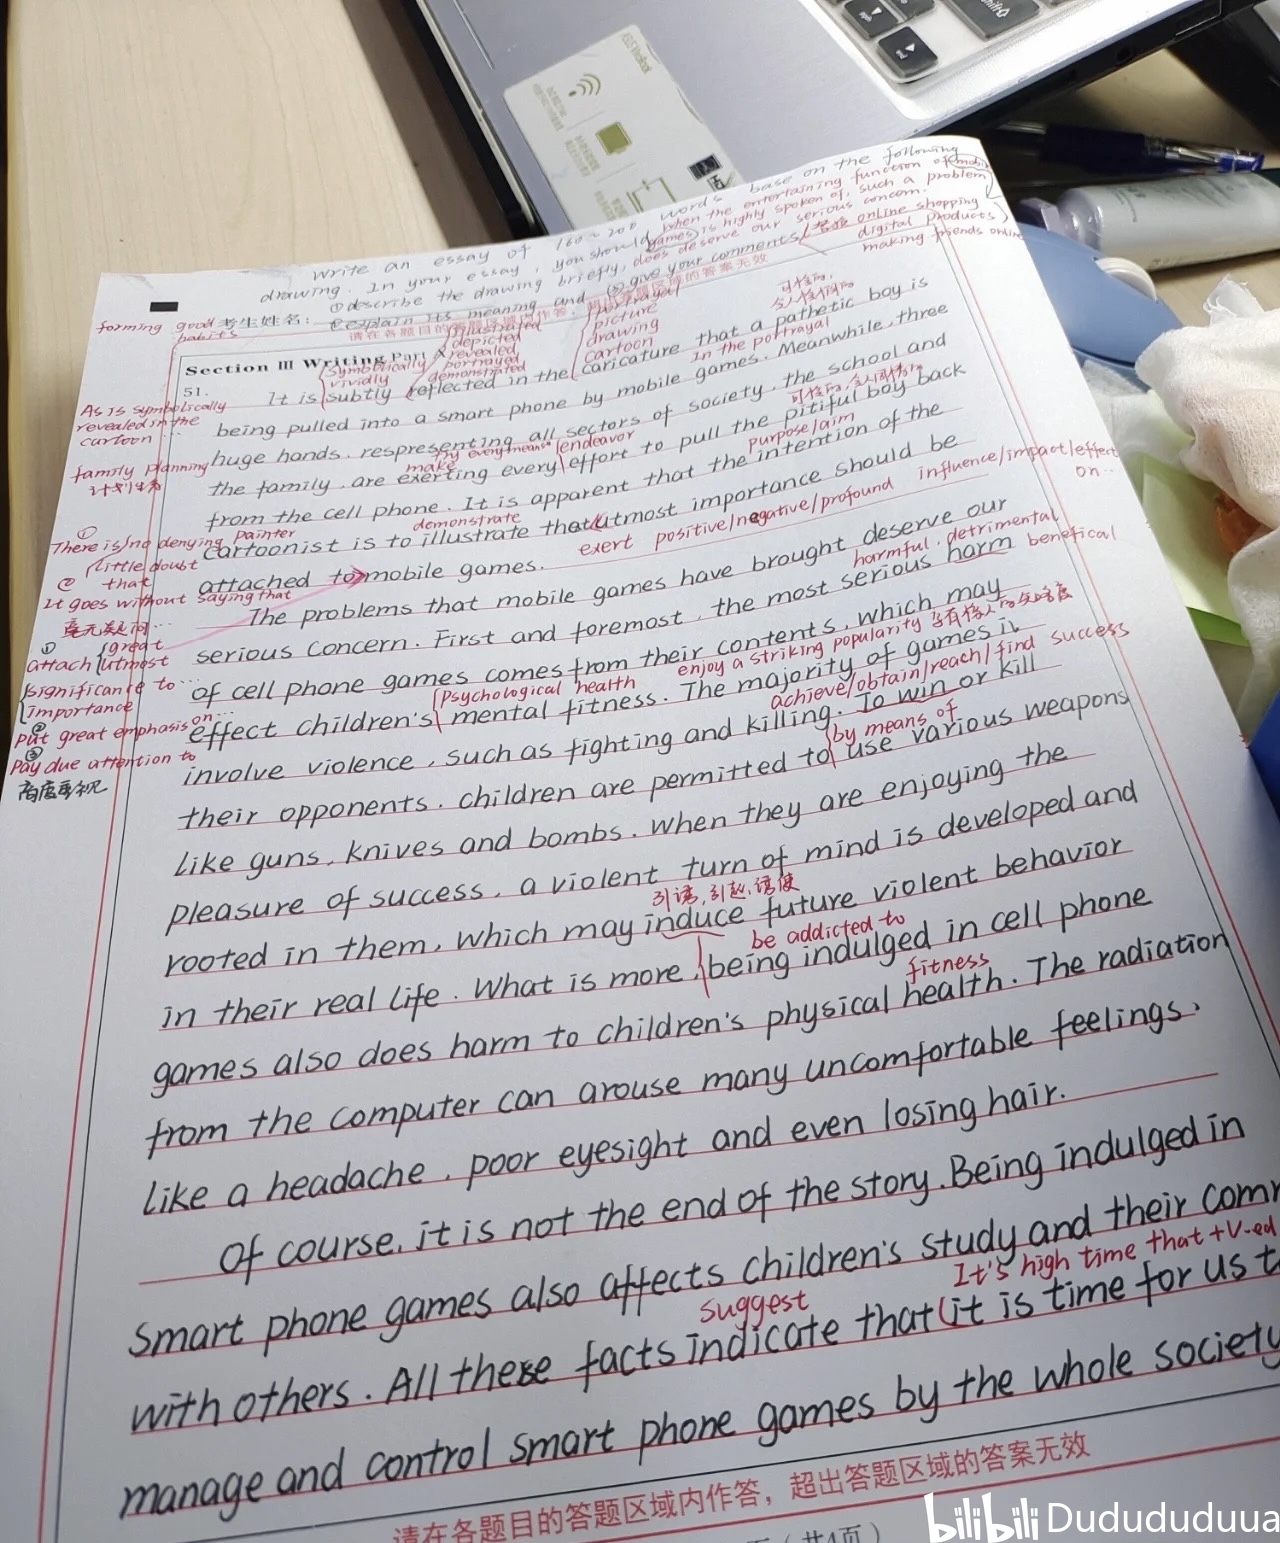 write an essay of 160~200 words base on the following
drawing. In your essay, you should
①describe the drawing briefly,
②explain its meaning and
③give your comments
when the entertaining function of mobile
games is highly spoken of, such a problem
does deserve our serious concern.
online shopping
digital products
making friends online
forming good
habits
考生姓名:
请在各题目的答题区域内作答,超出答题区域的答案无效
Section III Writing Part A
illustrated
depicted
revealed
portrayed
demonstrated
symbolically
vividly
portrayal
picture
drawing
cartoon
in the portrayal
51.
It is subtly reflected in the caricature that a pathetic boy is
being pulled into a smart phone by mobile games. Meanwhile, three
huge hands. respresenting all sectors of society, the school and
make
try every means
endeavor
the family, are exerting every effort to pull the pitiful boy back
purpose/aim
from the cell phone. It is apparent that the intention of the
demonstrate
painter
cartoonist is to illustrate that utmost importance should be
exert positive/negative/profound influence/impact/effect
on...
attached to mobile games.
The problems that mobile games have brought deserve our
harmful, detrimental
benefical
serious concern. First and foremost, the most serious harm
of cell phone games comes from their contents, which may
psychological health
enjoy a striking popularity
effect children's mental fitness. The majority of games is
achieve/obtain/reach/find success
involve violence, such as fighting and killing. To win or kill
by means of
their opponents. children are permitted to use various weapons
like guns, knives and bombs. When they are enjoying the
pleasure of success, a violent turn of mind is developed and
引诱,引起,诱使
rooted in them, which may induce future violent behavior
be addicted to
in their real life. What is more, being indulged in cell phone
fitness
games also does harm to children's physical health. The radiation
from the computer can arouse many uncomfortable feelings.
like a headache, poor eyesight and even losing hair.
Of course, it is not the end of the story. Being indulged in
smart phone games also affects children's study and their comm
It's high time that +V-ed
suggest
with others. All these facts indicate that it is time for us t
manage and control smart phone games by the whole society
As is symbolically
revealed in the
cartoon ...
family planning
计划生育
①
There is/no denying
little doubt
that
②
It goes without saying that
毫无疑问...
①
attach great
utmost
significance to...
importance
②
put great emphasis on...
③
Pay due attention to
高度重视
请在各题目的答题区域内作答,超出答题区域的答案无效
页(共4页)
bilibili Dudududuua